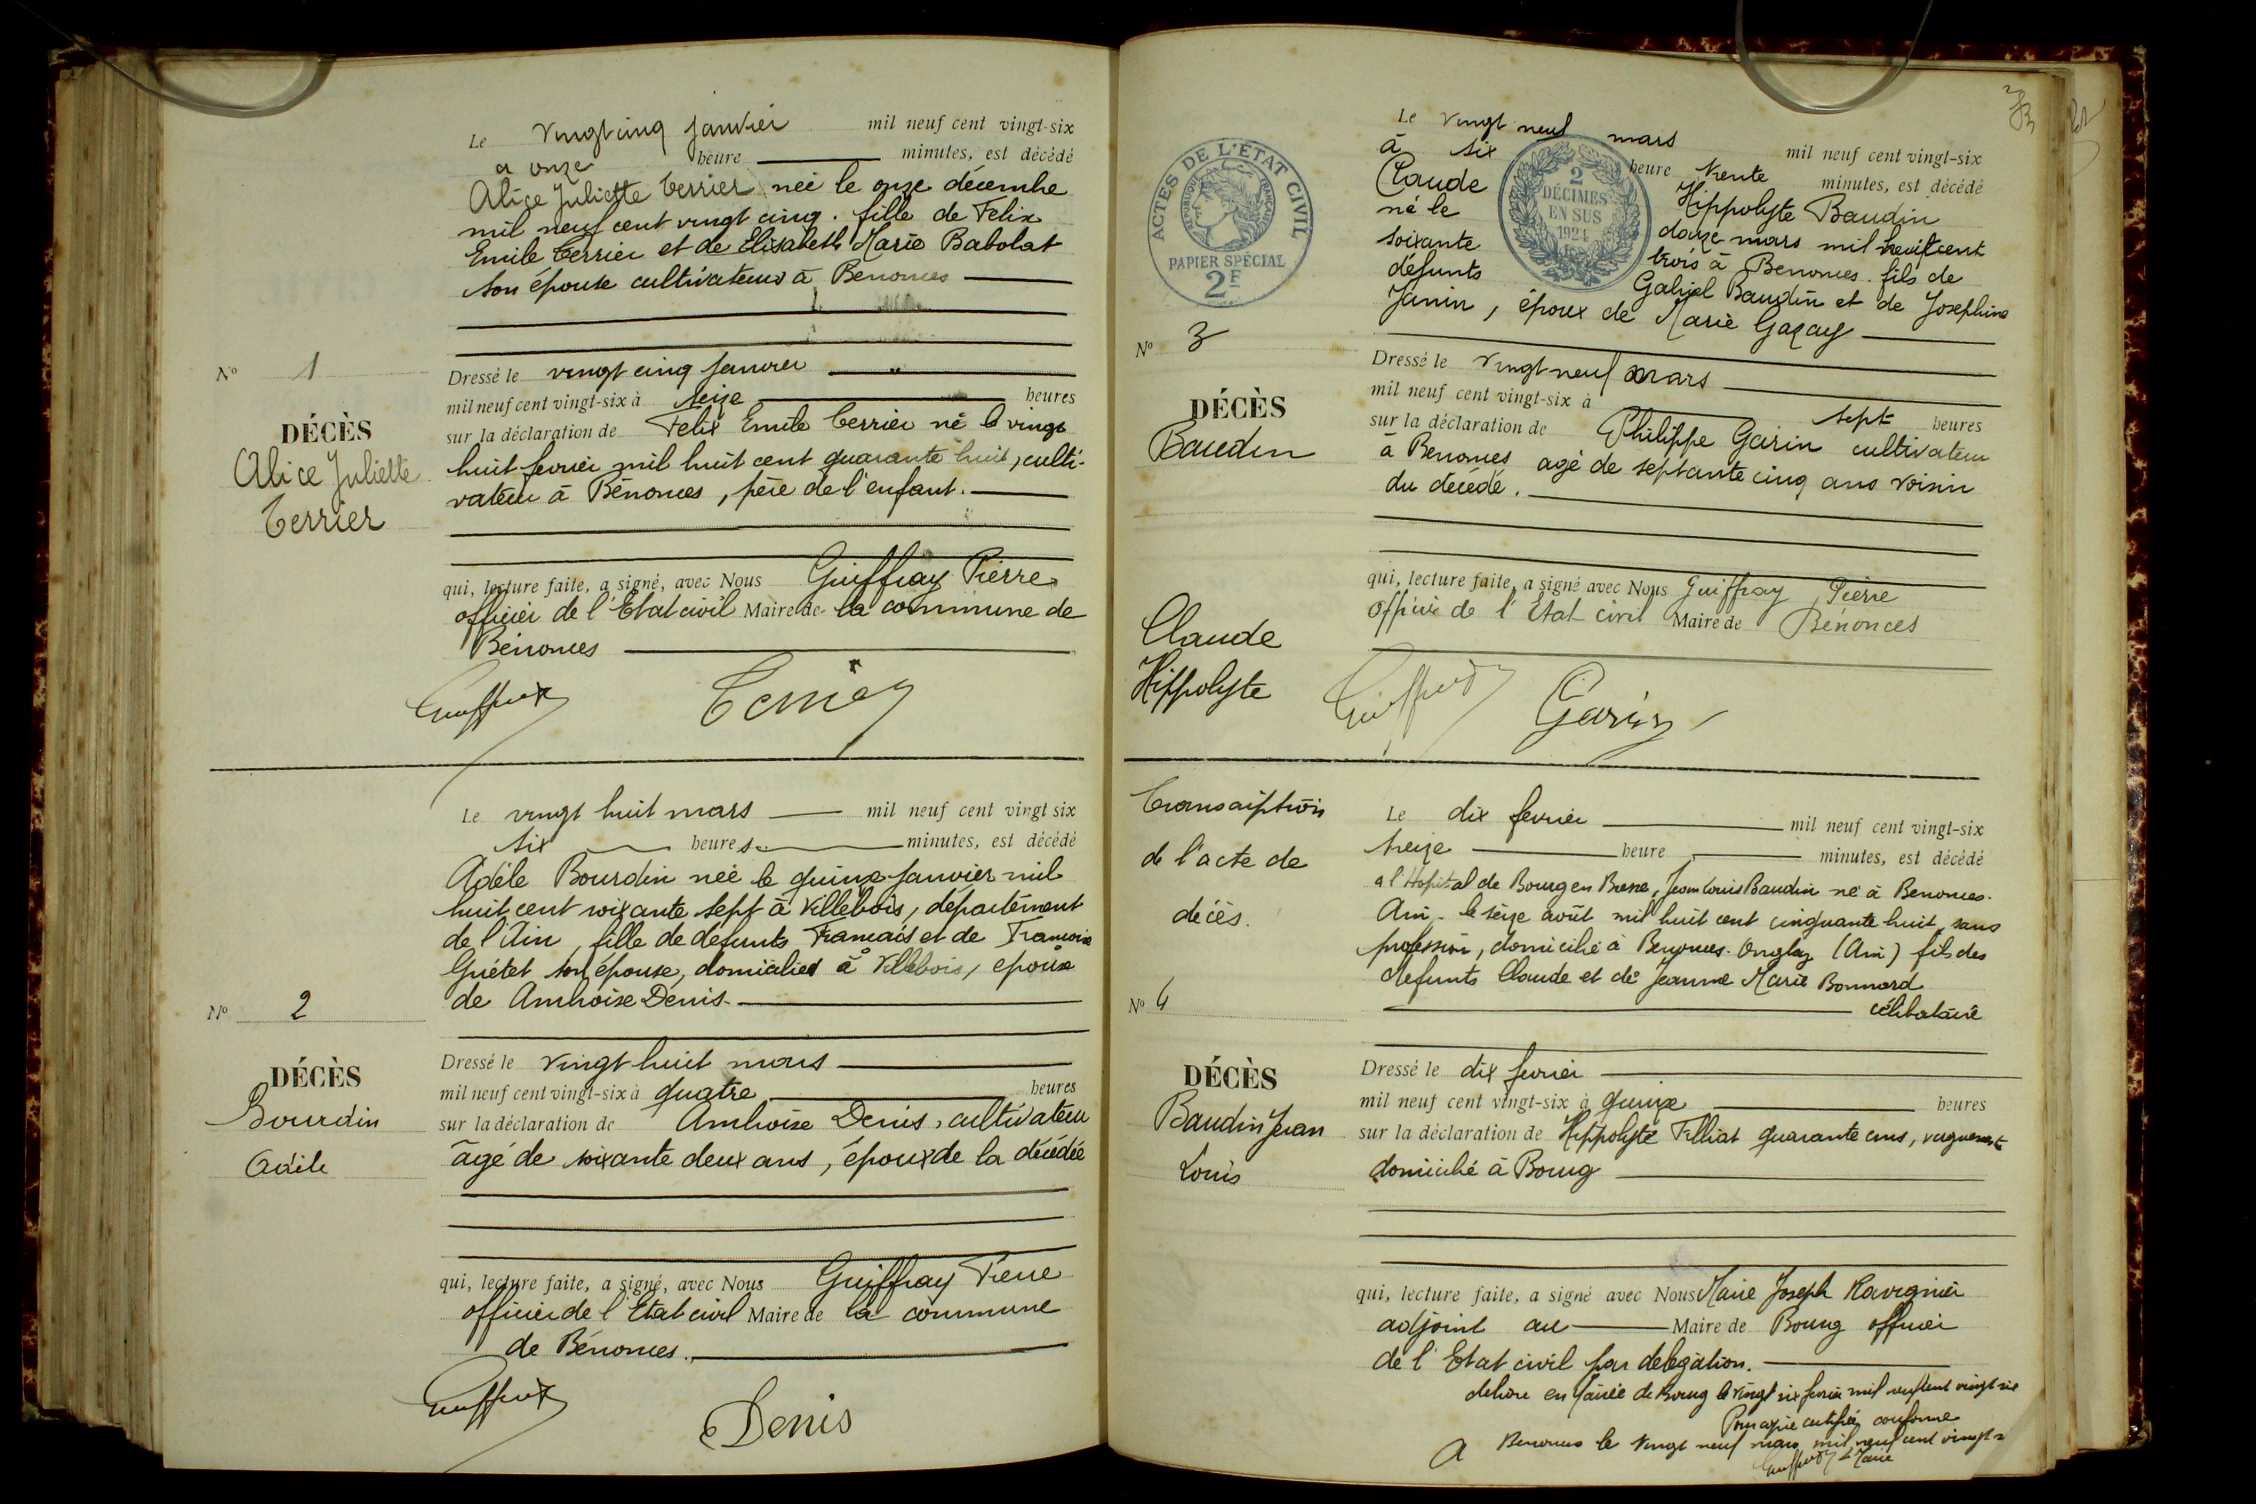 Le vingt cinq janvier mil neuf cent vingt-six
a onze heure minutes, est décédé
Alice Juliette Terrier née le onze décembre
mil neuf cent vingt cinq. fille de Felix
Emile Terrier et de Elisabeth Marie Babolat
son épouse cultivateurs à Benonces
N° 1
DÉCÈS
Alice Juliette
Terrier
Dressé le vingt cinq janvier "
mil neuf cent vingt-six à seize heures
sur la déclaration de Felix Emile Terrier né le vingt
huit fevrier mil huit cent quarante huit, culti-
vateur à Bénonces, père de l'enfant.
qui, lecture faite, a signé, avec Nous Guiffray Pierre
officier de l'Etat civil Maire de la commune de
Bénonces
Guiffray Terrier
Le vingt huit mars mil neuf cent vingt six
six heures minutes, est décédé
Adèle Bourdin née le quinze janvier mil
huit cent soixante sept à Villebois, département
de l'Ain, fille de defunts Francois et de Francoise
Guétet son épouse, domiciliés à Villebois, epouse
de Ambroise Denis
N° 2
DÉCÈS
Bourdin
Adèle
Dressé le vingt huit mars
mil neuf cent vingt-six à quatre heures
sur la déclaration de Ambroise Denis, cultivateur
âgé de soixante deux ans, époux de la décédée
qui, lecture faite, a signé, avec Nous Guiffray Pierre
officier de l'Etat civil Maire de la commune
de Bénonces.
Guiffray
Denis
ACTES DE L'ÉTAT CIVIL
RÉPUBLIQUE FRANÇAISE
PAPIER SPÉCIAL
2F
2
DÉCIMES
EN SUS
1924
Le vingt neuf mars mil neuf cent vingt-six
à six heure trente minutes, est décédé
Claude Hippolyte Baudin
né le douze mars mil huit cent
soixante trois à Benonces. fils de
défunts Gabriel Baudin et de Josephine
Janin, époux de Marie Gazay
N° 3
DÉCÈS
Baudin
Claude
Hippolyte
Dressé le vingt neuf mars
mil neuf cent vingt-six à sept heures
sur la déclaration de Philippe Garin cultivateur
à Benonces agé de septante cinq ans voisin
du décédé.
qui, lecture faite, a signé avec Nous Guiffray Pierre
officier de l'Etat civil Maire de Bénonces
Guiffray Garin
Transcription
de l'acte de
décès.
Le dix fevrier mil neuf cent vingt-six
treize heure minutes, est décédé
a l'Hopital de Bourg en Bresse, Jean Louis Baudin né à Benonces.
Ain. le seize août mil huit cent cinquante huit, sans
profession, domicilié à Benonces. Onglas (Ain) fils des
defunts Claude et de Jeanne Marie Bonnard
célibataire
N° 4
DÉCÈS
Baudin Jean
Louis
Dressé le dix fevrier
mil neuf cent vingt-six à quinze heures
sur la déclaration de Hippolyte Filliat quarante ans,
domicilié à Bourg
qui, lecture faite, a signé avec Nous Marie Joseph Ravignier
adjoint au Maire de Bourg officier
de l'Etat civil par delegation.
délivré en Mairie de Bourg le vingt six fevrier mil neuf cent vingt six
Pour copie certifiée conforme
A Benonces le vingt neuf mars mil neuf cent vingt
Guiffray Maire